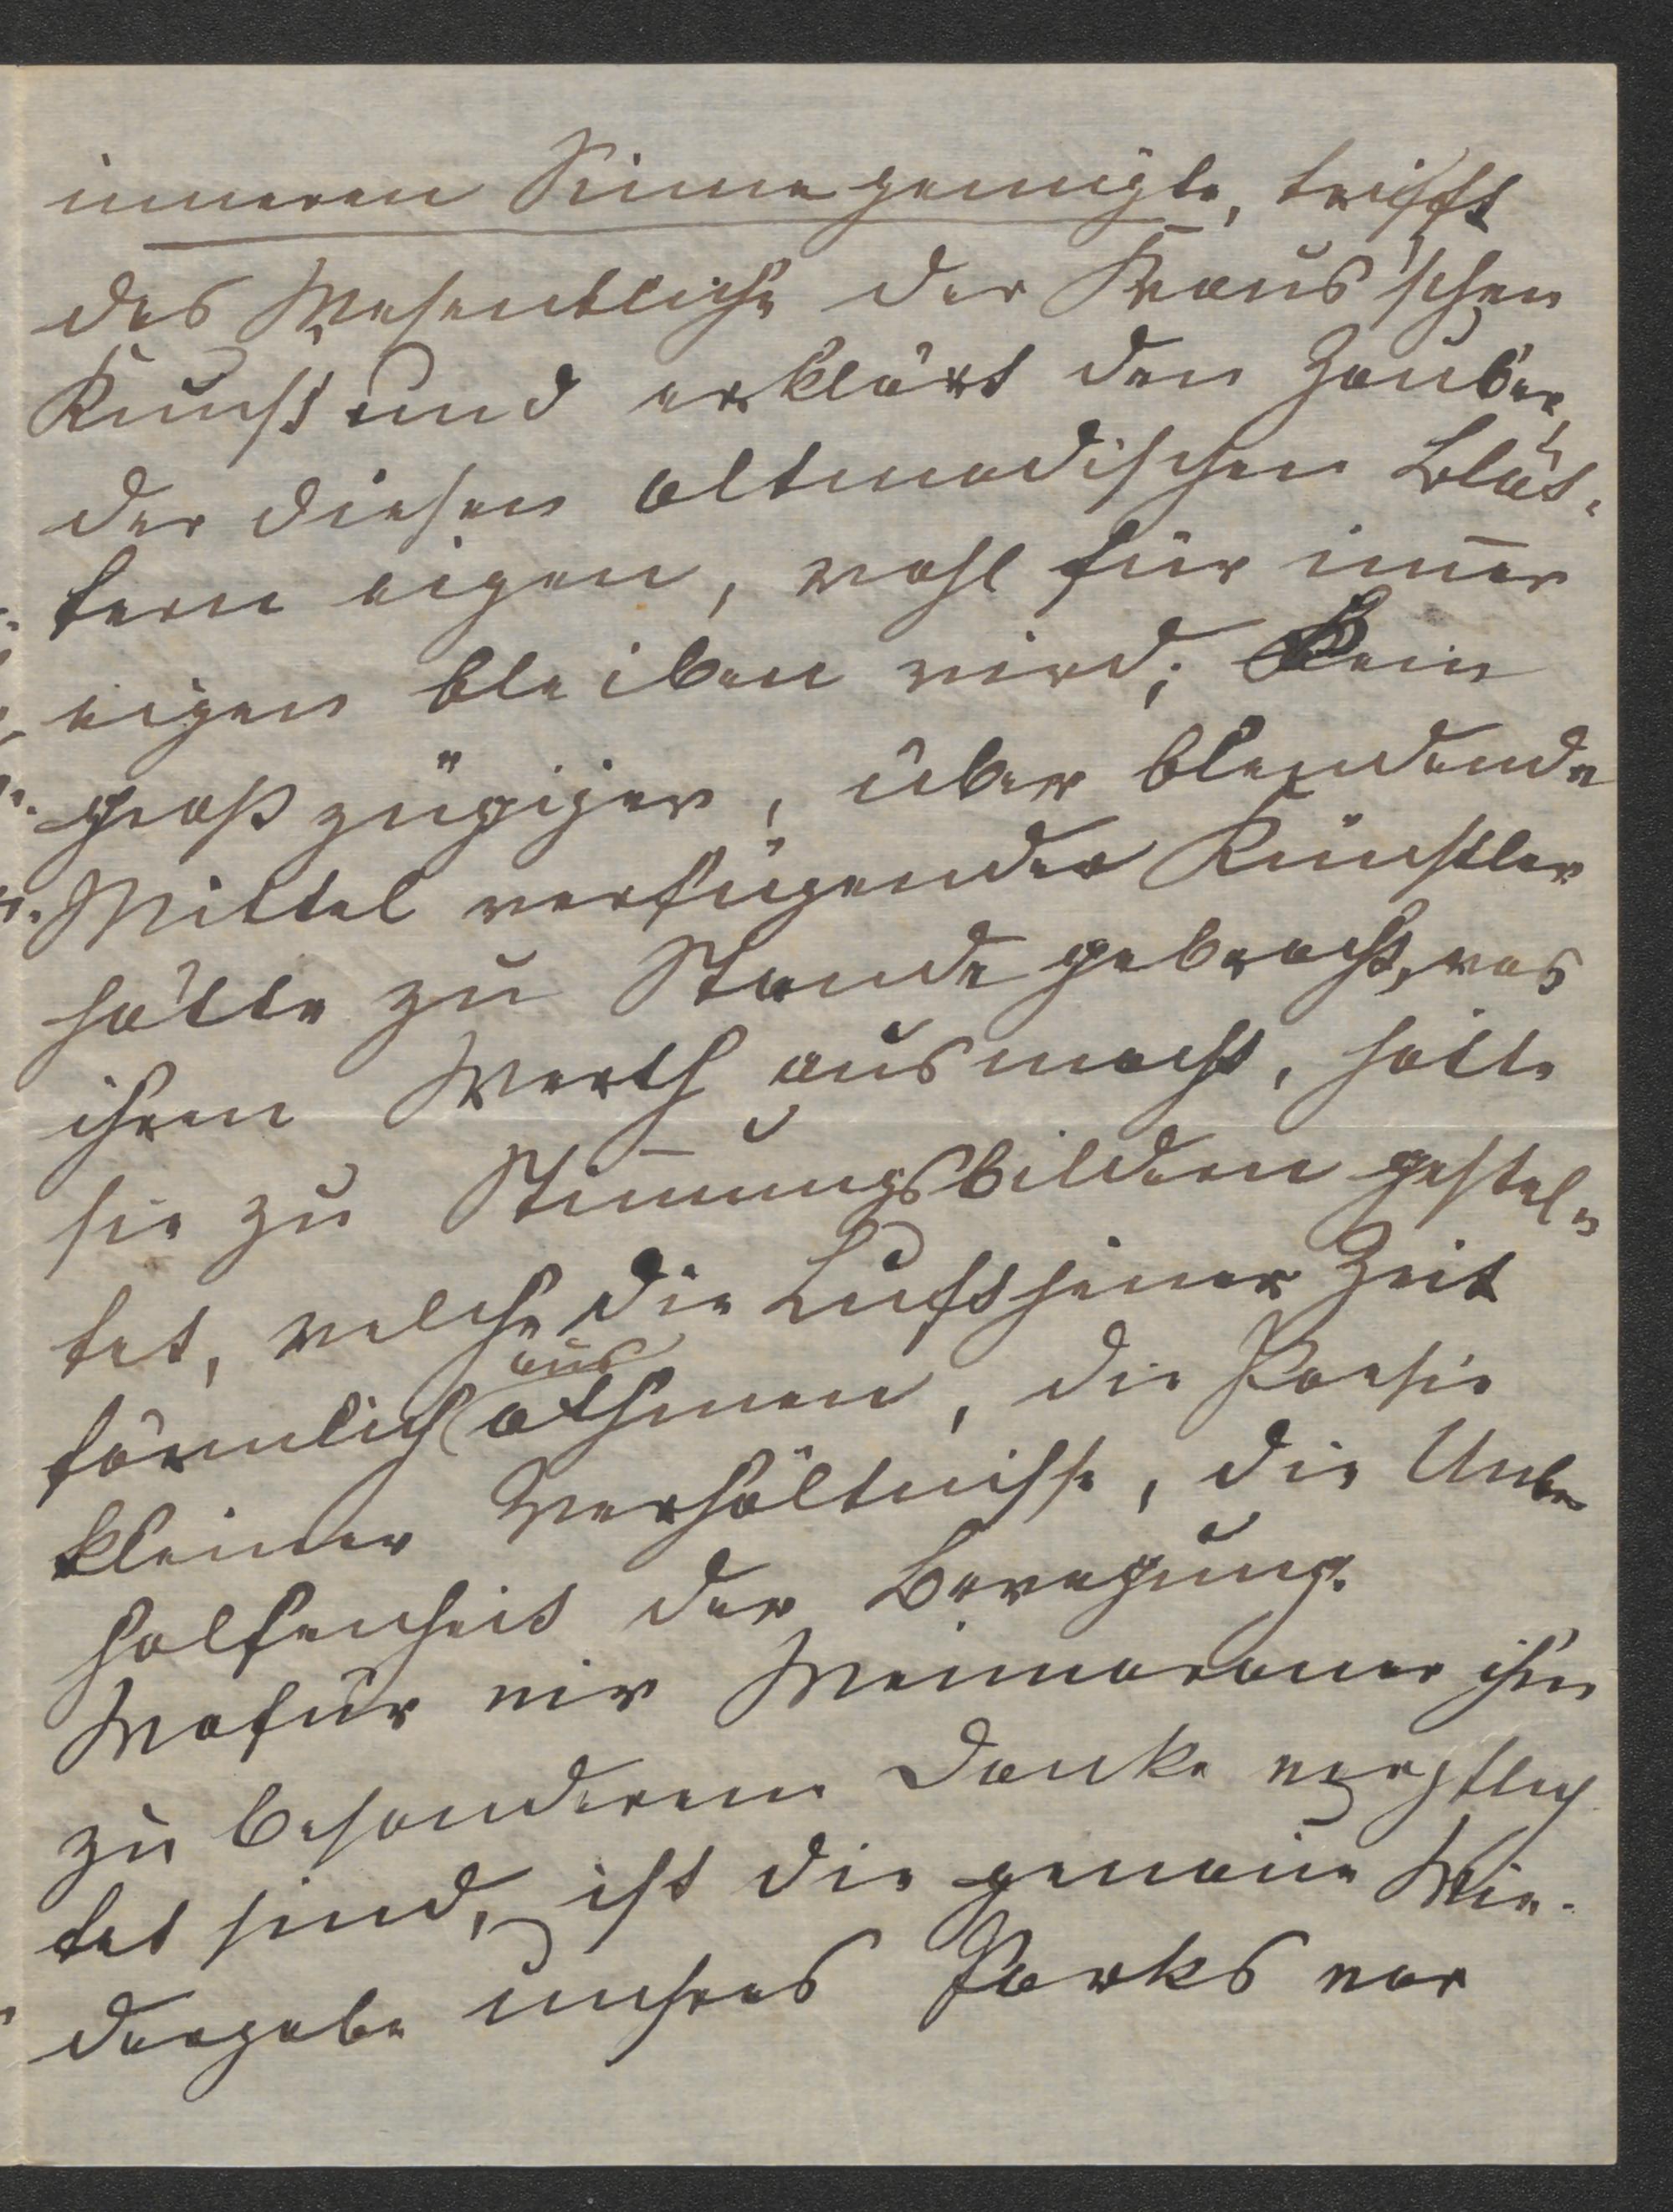 inneren Sinne genügte, trifft
das Wesentliche der Kraus'schen
Kunst und erklärt den Zauber,
der diesen altmodischen Blät-
tern eigen, wohl für im̅er
eigen bleiben wird; Kein
großzügiger, über blendende
Mittel verfügender Künstler
hätte zu Stande gebracht, was
ihren Werth ausmacht, hätte
sie zu Stim̅ungsbildern gestal-
tet, welche die Luft jener Zeit
förmlich ausathmen, die Poesie
kleiner Verhältnisse, die Unbe
holfenheit der Bewegung.
Wofür wir Weimaraner ihm
zu besonderem Danke verpflich
tet sind, ist die genaue Wie-
dergabe unseres Parks vor